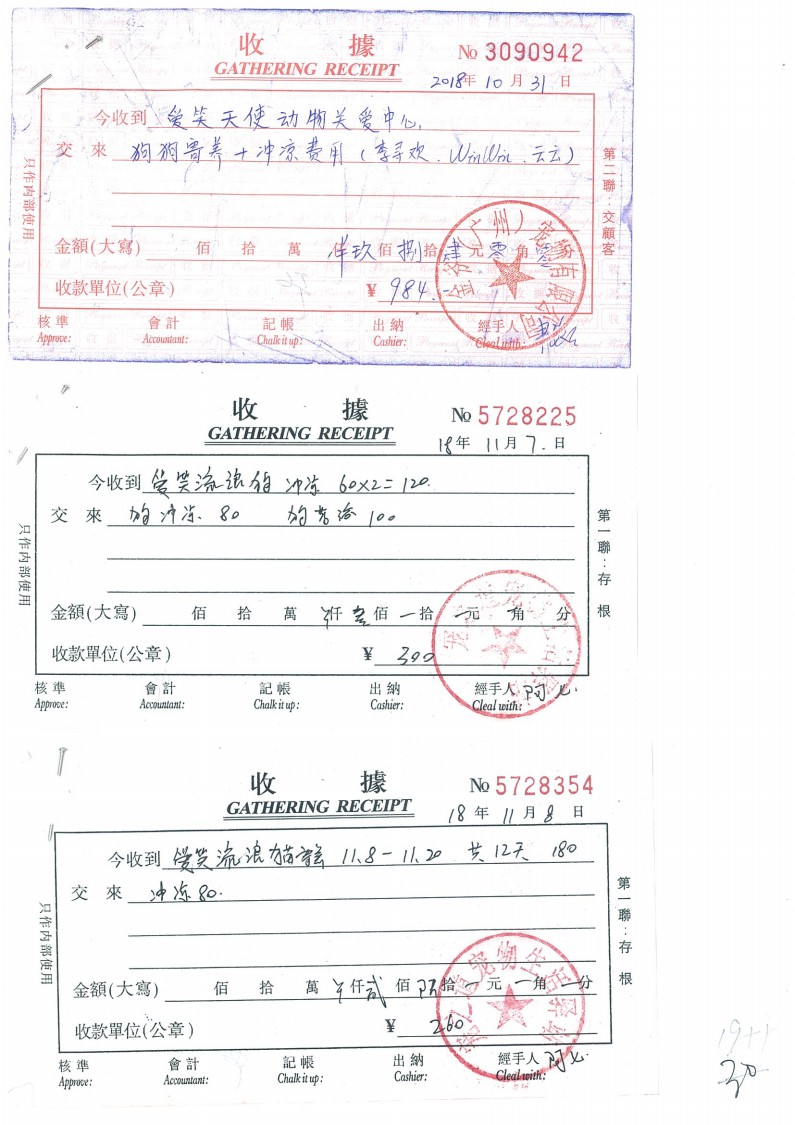 收 據
GATHERING RECEIPT
№ 3090942
2018年 10月 31日
今收到 爱笑天使动物关爱中心.
交 來 狗狗寄养+冲凉费用(李寻欢.WinWin.云云)
金額(大寫) 佰 拾 萬 仟 玖 佰 捌 拾 肆 元 零 角 零
收款單位(公章) ¥ 984.-
核準 會計 記帳 出納 經手人
Approve: Accountant: Chalk it up: Cashier: Cleal with:
只作内部使用
第二聯:交顧客
收 據
GATHERING RECEIPT
№ 5728225
18年 11月 7.日
今收到 爱笑流浪狗 冲凉 60x2=120.
交 來 冲凉. 80 100
金額(大寫) 佰 拾 萬 仟 叁 佰 一 拾 元 角 分
收款單位(公章) ¥ 300
核準 會計 記帳 出納 經手人
Approve: Accountant: Chalk it up: Cashier: Cleal with:
只作内部使用
第一聯:存根
收 據
GATHERING RECEIPT
№ 5728354
18年 11月 8日
今收到 爱笑流浪猫 11.8-11.20 共12天 180
交 來 冲凉80.
金額(大寫) 佰 拾 萬 仟 贰 佰 陆 拾 一 元 一 角 一 分
收款單位(公章) ¥ 260
核準 會計 記帳 出納 經手人
Approve: Accountant: Chalk it up: Cashier: Cleal with:
只作内部使用
第一聯:存根